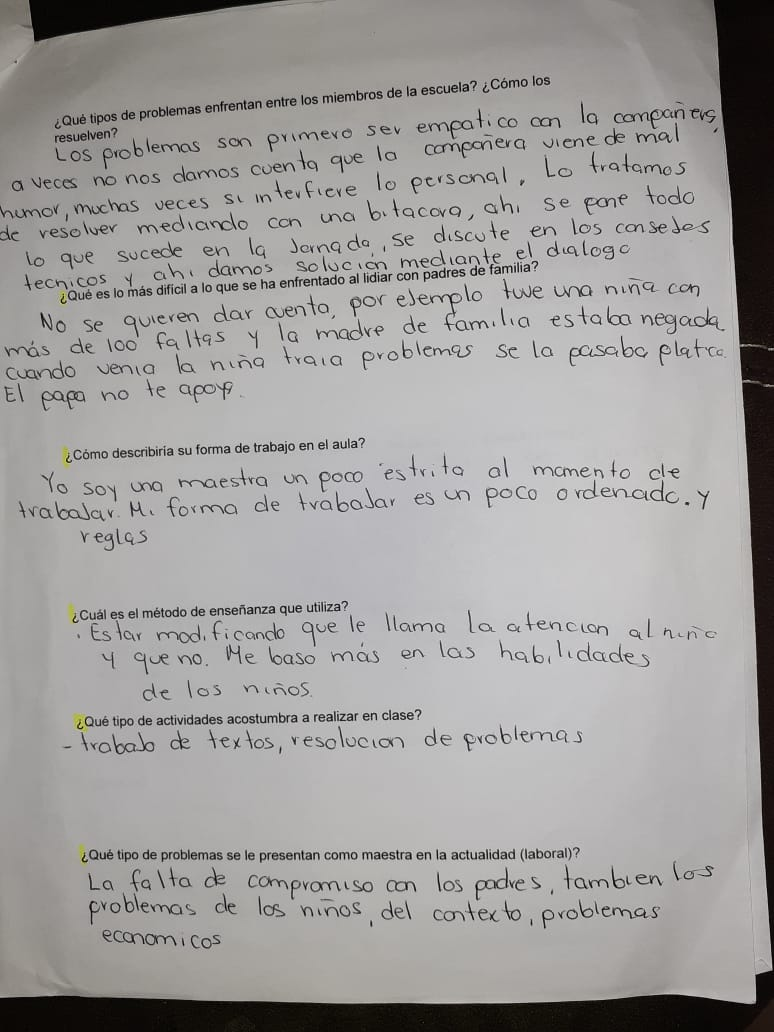 ¿Qué tipos de problemas enfrentan entre los miembros de la escuela? ¿Cómo los
resuelven?
Los problemas son primero ser empatico con la compañera,
a veces no nos damos cuenta que la compañera viene de mal
humor, muchas veces si interfiere lo personal, Lo tratamos
de resolver mediando con una bitacora, ahi se pone todo
lo que sucede en la Jornada, se discute en los consejos
tecnicos y ahi damos solución mediante el dialogo
¿Qué es lo más difícil a lo que se ha enfrentado al lidiar con padres de familia?
No se quieren dar cuenta, por ejemplo tuve una niña con
más de 100 faltas y la madre de familia estaba negada
cuando venia la niña traia problemas se la pasaba platica.
El papa no te apoya.
¿Cómo describiría su forma de trabajo en el aula?
Yo soy una maestra un poco estrita al momento de
trabajar. Mi forma de trabajar es un poco ordenado. y
reglas
¿Cuál es el método de enseñanza que utiliza?
. Estar modificando que le llama la atencion al niño
y que no. Me baso más en las habilidades
de los niños.
¿Qué tipo de actividades acostumbra a realizar en clase?
- trabajo de textos, resolucion de problemas
¿Qué tipo de problemas se le presentan como maestra en la actualidad (laboral)?
La falta de compromiso con los padres, tambien los
problemas de los niños, del contexto, problemas
economicos